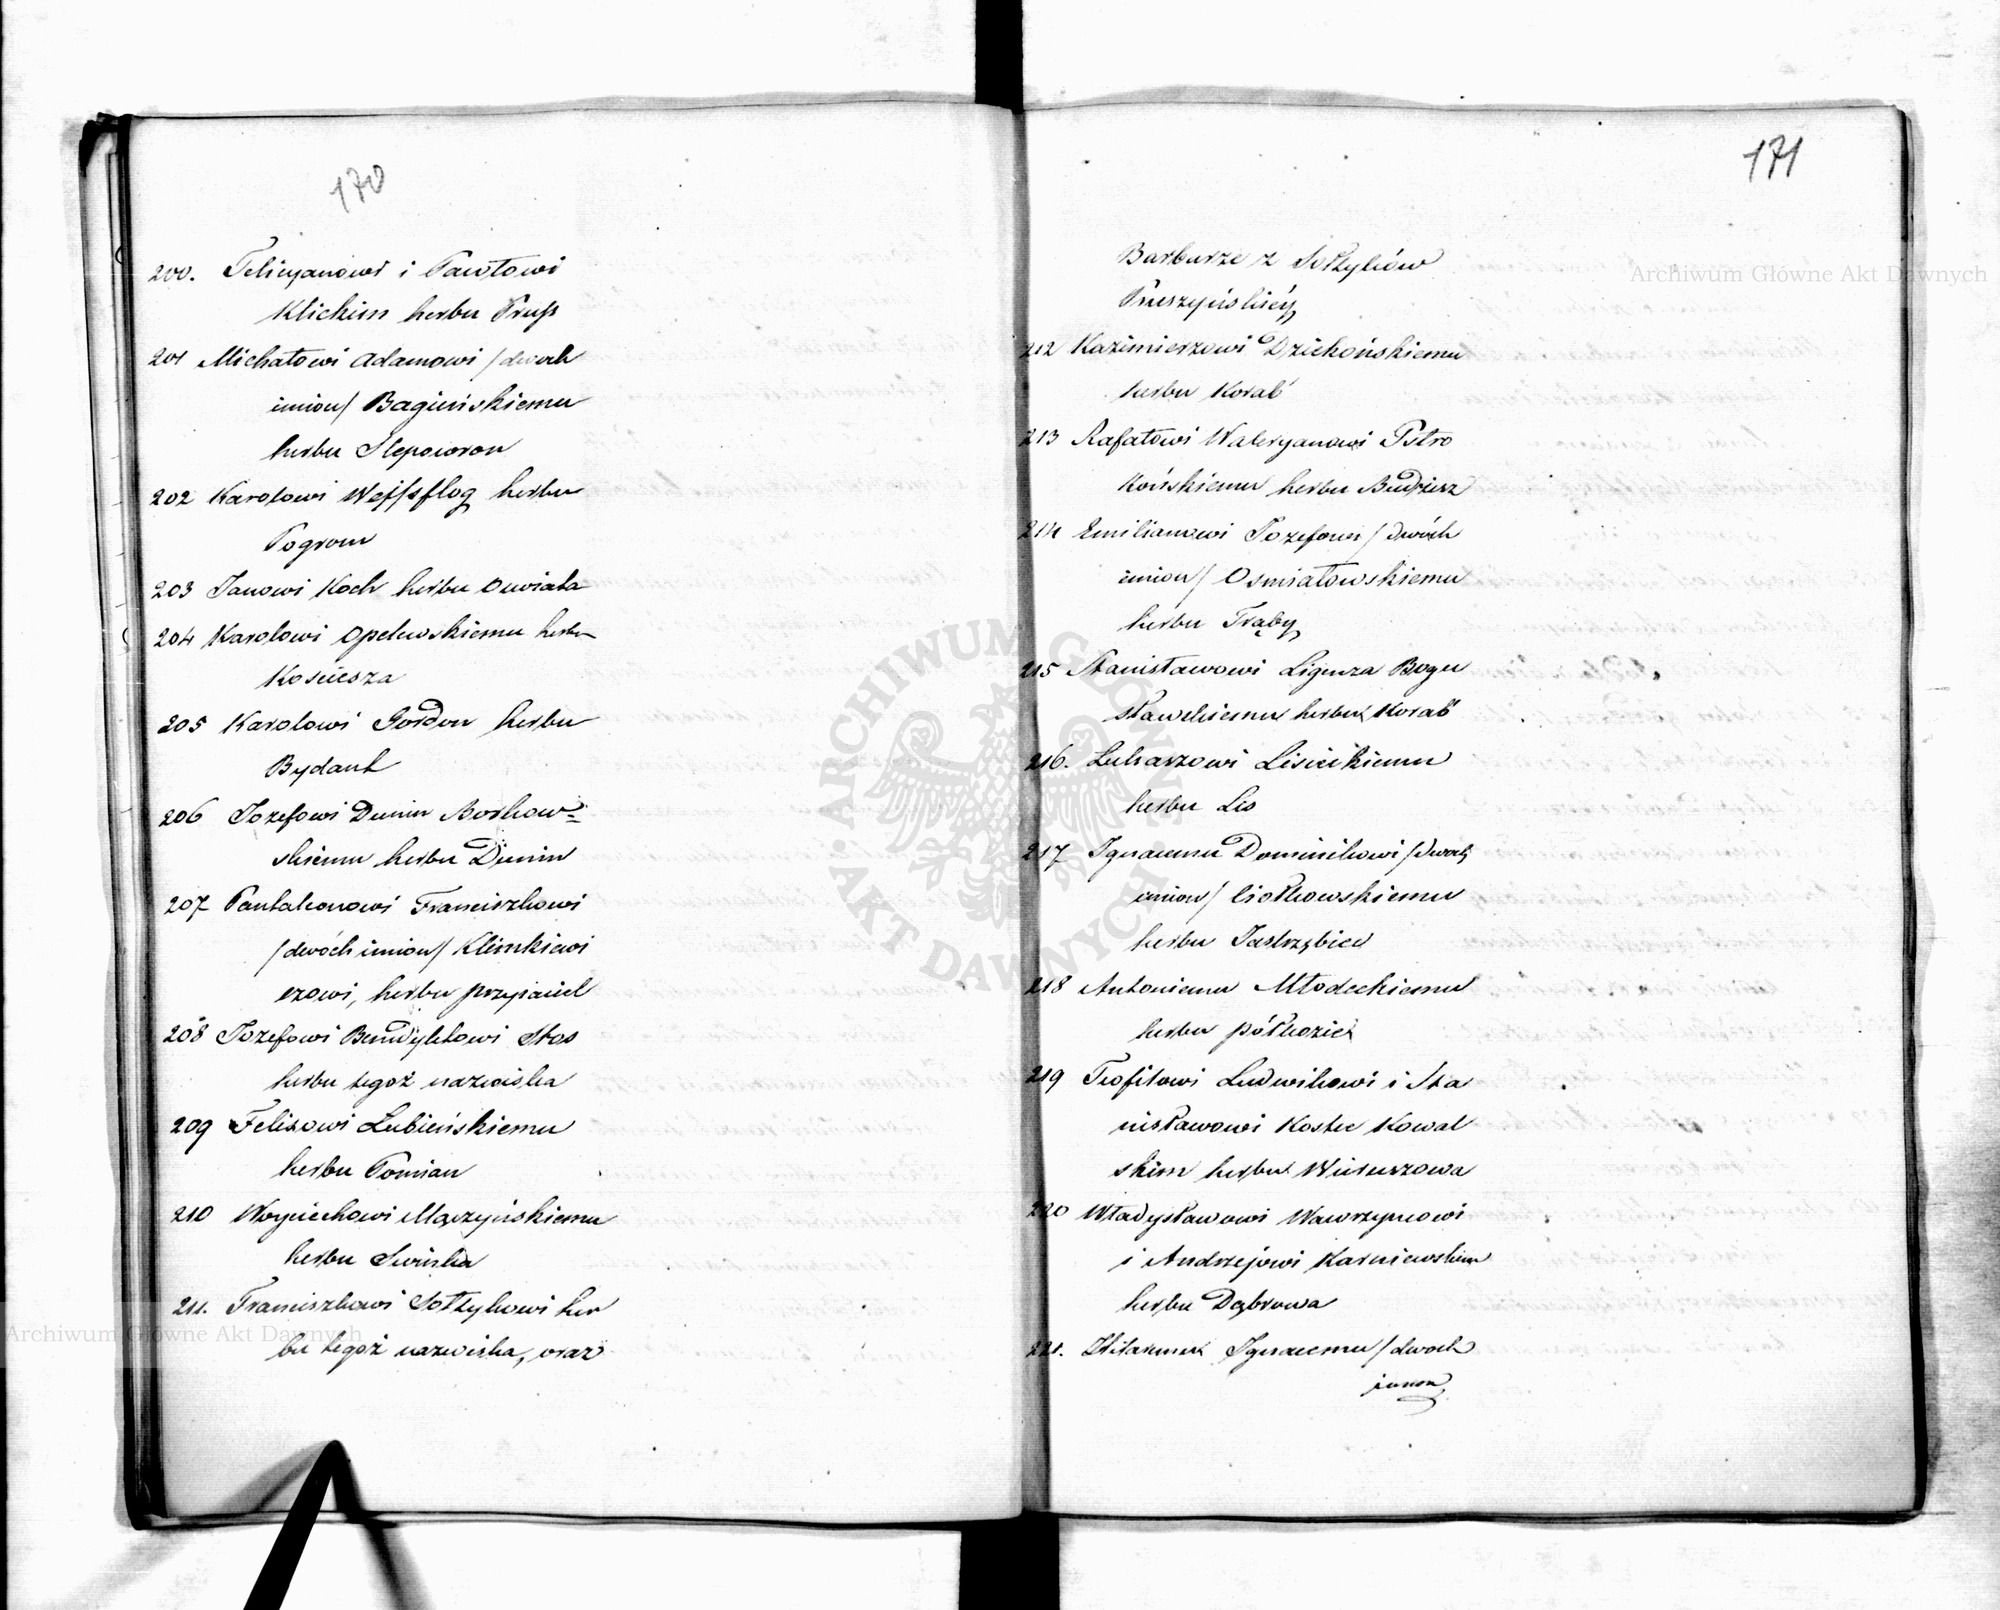 170
200. Felicyanowi i Pawłowi
Klickim herbu Pruss
201 Michałowi Adamowi /dwoch
imion/ Bagieńskiemu
herbu Slepowron
202 Karolowi Weissflog herbu
Pogrom
203 Janowi Koch herbu
204 Karolowi Opelewskiemu herbu
Kosciesza
205 Karolowi Gordon herbu
Bydant
206 Jozefowi Dunin Borkow=
skiemu herbu Dunin
207 Pantaleonowi Franciszkowi
/dwóch imion/ Klimkiewi
czowi, herbu przyjaciel
208 Jozefowi Benedyktowi Stos
herbu tegoż nazwiska
209 Felixowi Łubieńskiemu
herbu Pomian
210 Woyciechowi Mączyńskiemu
herbu Swinka
211. Franciszkowi Sołtykowi her
bu tegoż nazwiska, oraz
171
Barburze z Sołtyków
Pruszyńskiéy
212 Kazimierzowi Dzichońskiemu
herbu Korab
213 Rafałowi Waleryanowi Pstro
końskiemu herbu Budzisz
214 Emilianowi Jozefowi /dwóch
imion/ Osmiałowskiemu
herbu Trąby
215 Stanisławowi Ligenza Bogu
sławskiemu herbu Korab
216. Łukaszowi Lisickiemu
herbu Lis
217 Ignacemu Dominikowi /dwoch
imion/ Ciołkowskiemu
herbu Jastrzębiec
218 Antoniemu Młodeckiemu
herbu półkozic
219 Teofilowi Ludwikowi i Sta
nisławowi Kostce Kowal
skim herbu Wieruszowa
220 Władysławowi Wawrzyncowi
i Andrzejowi Karniewskim
herbu Dąbrowa
221. Ignacemu /dwoch
imion
Archiwum Główne Akt Dawnych
Archiwum Główne Akt Dawnych
ARCHIWUM GŁÓWNE • AKT DAWNYCH •